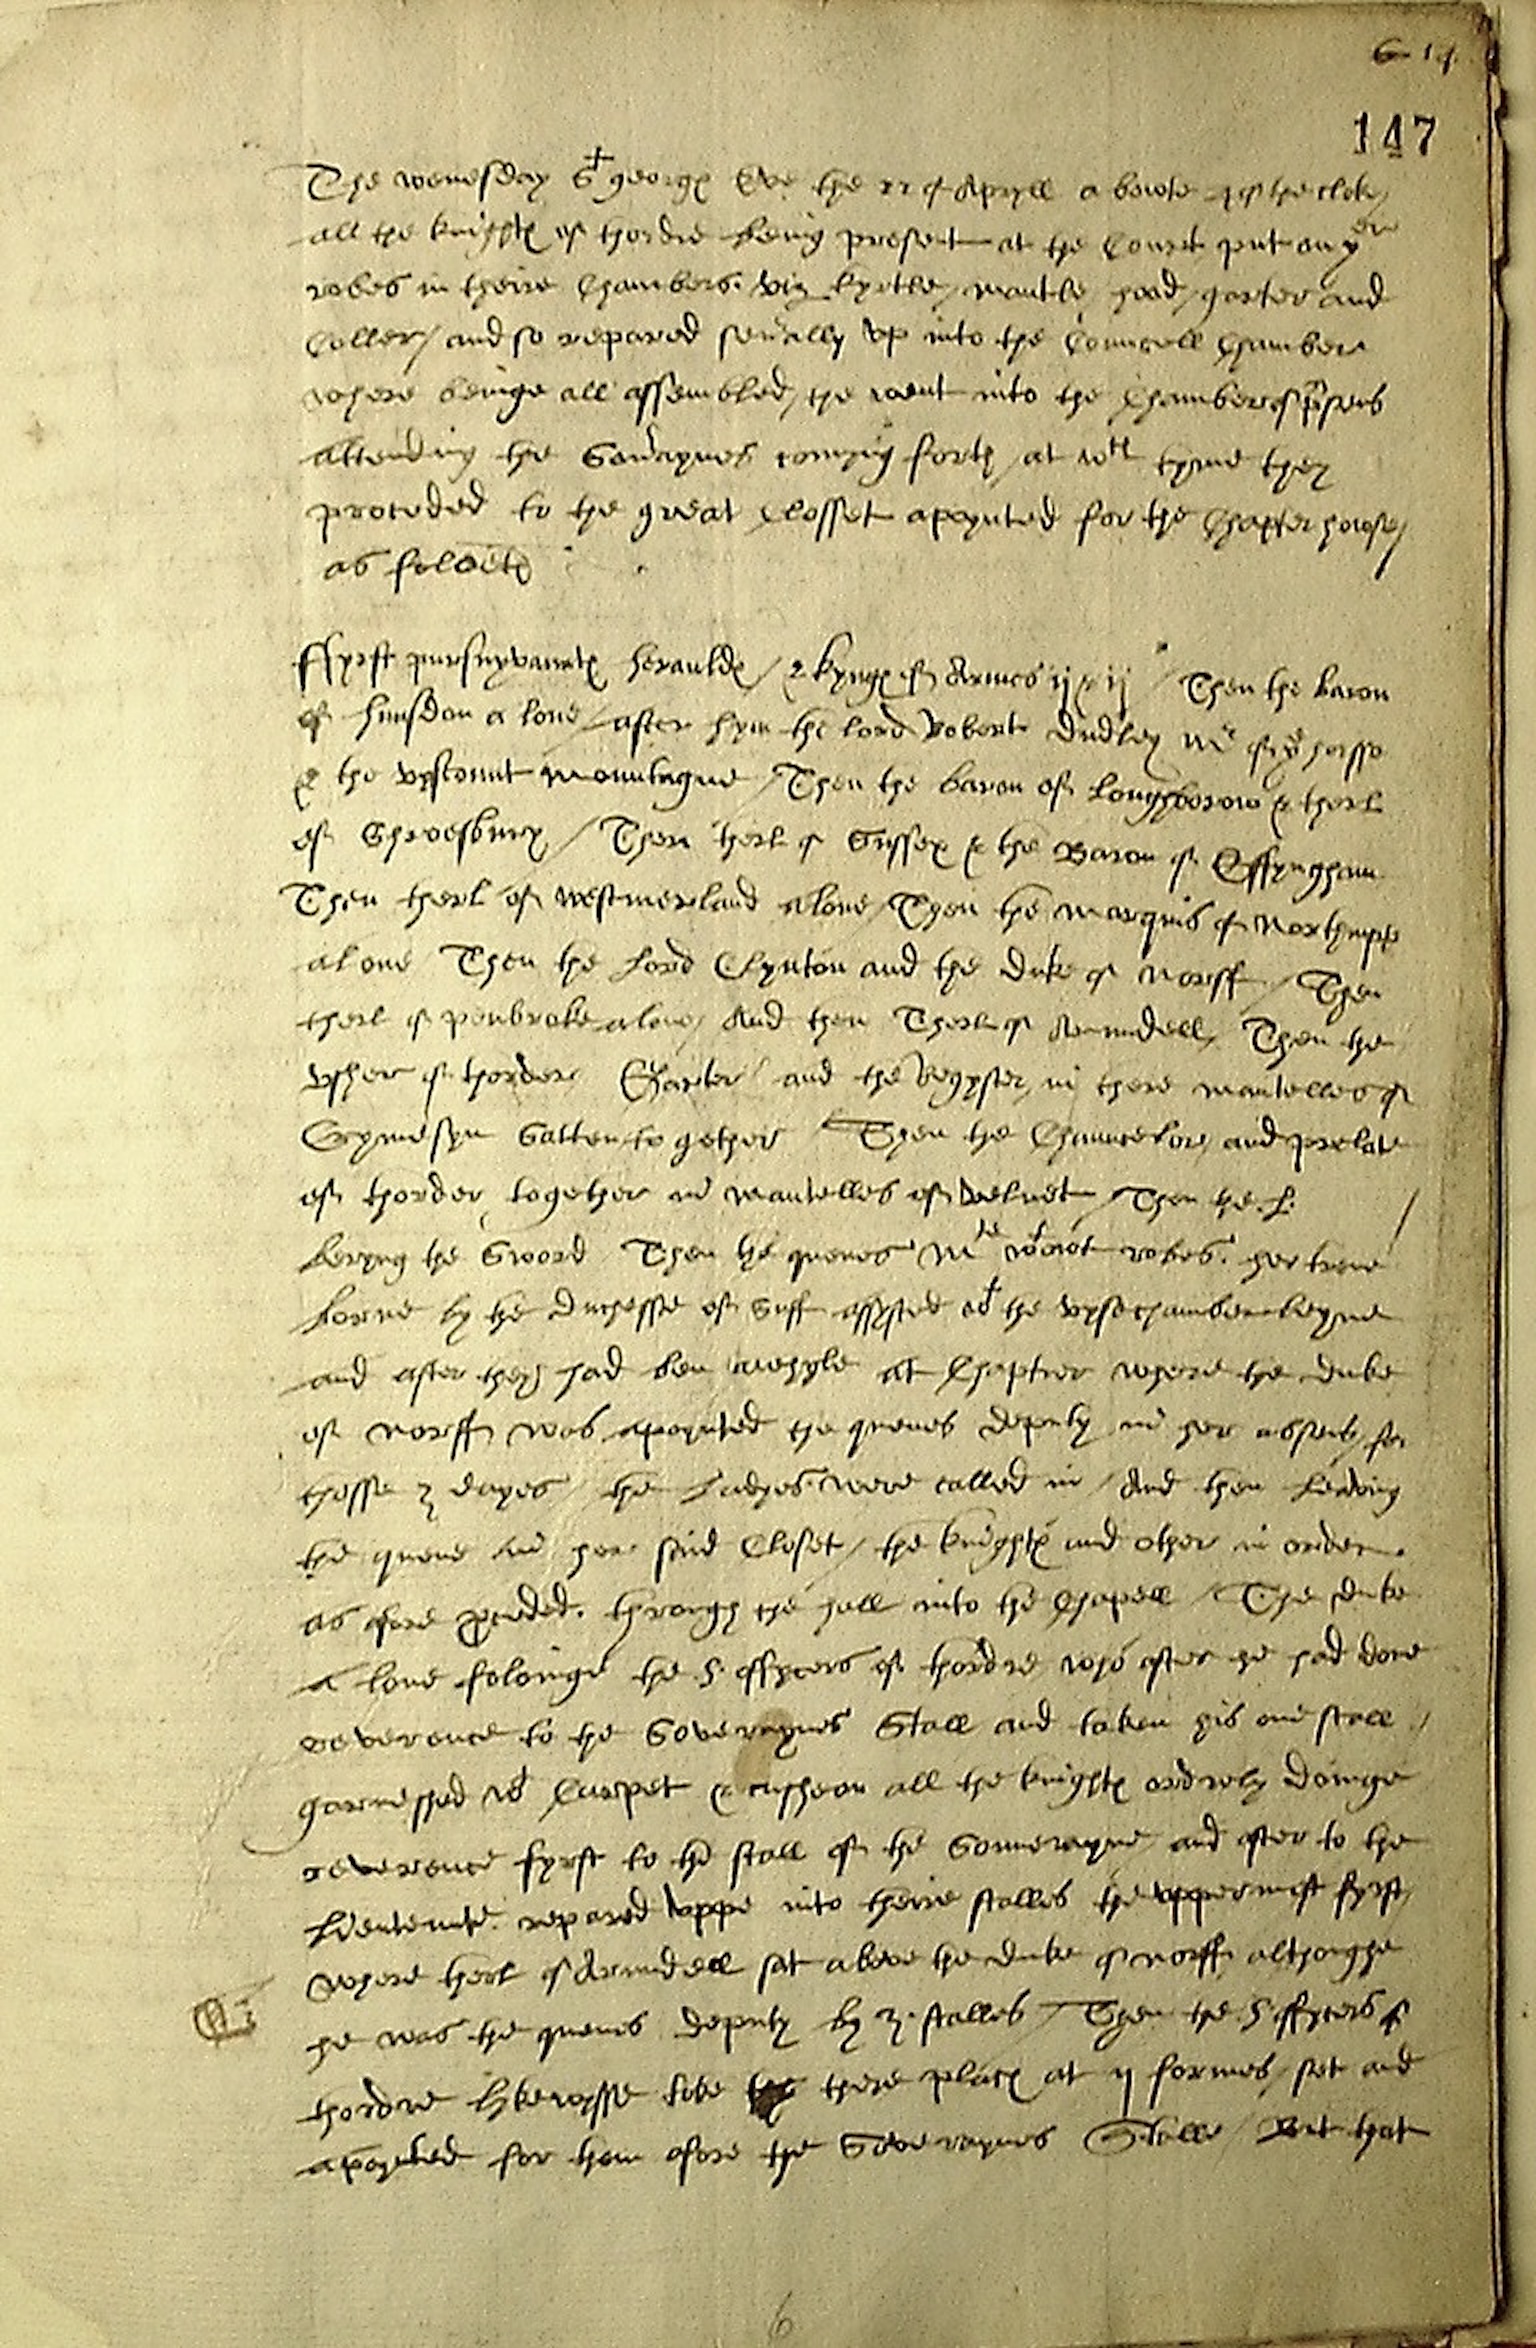 147
The wenesday St george Eve the 22 of Apryll a bowte of the cloke
all the knightes of thordre being present at the Court put on yeir
robes in theire Chambers. viz kyrtle, mantle, hood, garter and
Coller, and so repared severally vp into the Councell Chamber
where beinge all assembled, the went into the Chamber of presens
Attending the Soveraynes comyng forth, at wch tyme they
proceded to the great Closset apoynted for the Chapter howse,
as foloeth
ffyrst pursuyvantes herauldes, & kynges of Armes ij & ij / Then the baron
of hunsdon a lone, after hym the lord Robert dudley Mr of ye horsse
& the vyscount Mountague / Then the baron of Loughborow & therl
of Shroesbury / Then therl of Sussex & the Baron of Effyngham
Then therl of westmerland alone / Then the marquis of Northampt
alone Then the Lord Clynton and the duke of Norff / Then
therl of penbroke alone, And then Therl of Arundell, Then the
vsher of thorder Gharter and the Regyster, in there mantelles of
Crymesyn Satten to gether / Then the Chauncelor, and prelate
of thorder, together in mantelles of velvet / Then the .L.
beryng the Sword Then the quenes Mte wtowt robes. her trene
borne by the duchesse of Suff assysted wt the vysechamberleyne
and after they had ben awhyle at Chapter where the duke
of norff was apoynted the quenes deputy in her absens, for
thesse 3 dayes, the Ladyes were called in / And then leaving
the quene in her said Closet, the knightes and other in order
as afore proceded. through the hall into the Chapell / The duke
a lone folowinge the 5 offycers of thordre who after he had done
reverence to the Soveraynes Stall and taken his one stall
garneshed wt Carpet & cusheon all the knightes orderly doinge
reverence fyrst to the stall of the Souverayne, and after to the
Lieutenante. repared vppe into theire stalles the vppermost fyrst,
where therl of Arundell sat above the duke of norff althoughe
he was the quenes deputy by 3. stalles / Then the 5 offycers of
thordre lykewysse toke there places at ij formes, set and
apoynted for them afore the Soveraynes Stalle / But that
6